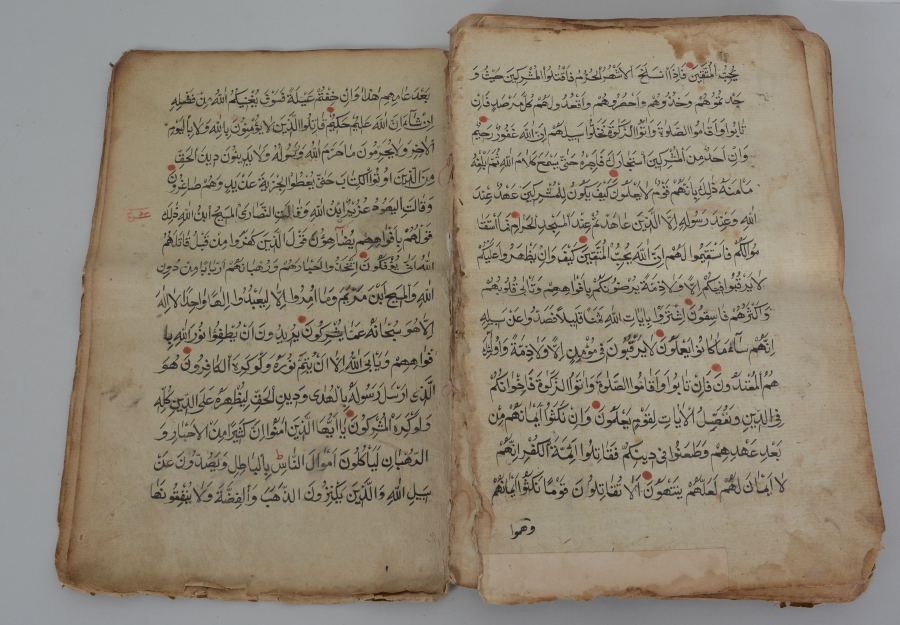 يحب المتقين فاذا انسلخ الاشهر الحرم فاقتلوا المشركين حيث و
جدتموهم وخذوهم واحصروهم واقعدوا لهم كل مرصد فان
تابوا واقاموا الصلوة واتوا الزكوة فخلوا سبيلهم ان الله غفور رحيم
وان احد من المشركين استجارك فاجره حتى يسمع كلام الله ثم ابلغه
مامنه ذلك بانهم قوم لا يعلمون كيف يكون للمشركين عهد عند
الله وعند رسوله الا الذين عاهدتم عند المسجد الحرام فما استقا
موا لكم فاستقيموا لهم ان الله يحب المتقين كيف وان يظهروا عليكم
لا يرقبوا فيكم الا ولا ذمة يرضونكم بافواههم وتابى قلوبهم
واكثرهم فاسقون اشتروا بايات الله ثمنا قليلا فصدوا عن سبيله
انهم ساء ما كانوا يعملون لا يرقبون في مؤمن الا ولا ذمة واولئك
هم المعتدون فان تابوا واقاموا الصلوة واتوا الزكوة فاخوانكم
في الدين ونفصل الايات لقوم يعلمون وان نكثوا ايمانهم من
بعد عهدهم وطعنوا في دينكم فقاتلوا ائمة الكفر انهم
لا ايمان لهم لعلهم ينتهون الا تقاتلون قوما نكثوا ايمانهم
وهموا
بعد عامهم هذا وان خفتم عيلة فسوف يغنيكم الله من فضله
ان شاء ان الله عليم حكيم قاتلوا الذين لا يؤمنون بالله ولا باليوم
الاخر ولا يحرمون ما حرم الله ورسوله ولا يدينون دين الحق
من الذين اوتوا الكتاب حتى يعطوا الجزية عن يد وهم صاغرون
وقالت اليهود عزير ابن الله وقالت النصارى المسيح ابن الله ذلك
قولهم بافواههم يضاهؤن قول الذين كفروا من قبل قاتلهم
الله انى يؤفكون اتخذوا احبارهم ورهبانهم اربابا من دون
الله والمسيح ابن مريم وما امروا الا ليعبدوا الها واحدا لا اله
الا هو سبحانه عما يشركون يريدون ان يطفؤا نور الله با
فواههم ويابى الله الا ان يتم نوره ولو كره الكافرون هو
الذى ارسل رسوله بالهدى ودين الحق ليظهره على الدين كله
ولو كره المشركون يا ايها الذين امنوا ان كثيرا من الاحبار و
الرهبان لياكلون اموال الناس بالباطل ويصدون عن
سبيل الله والذين يكنزون الذهب والفضة ولا ينفقونها